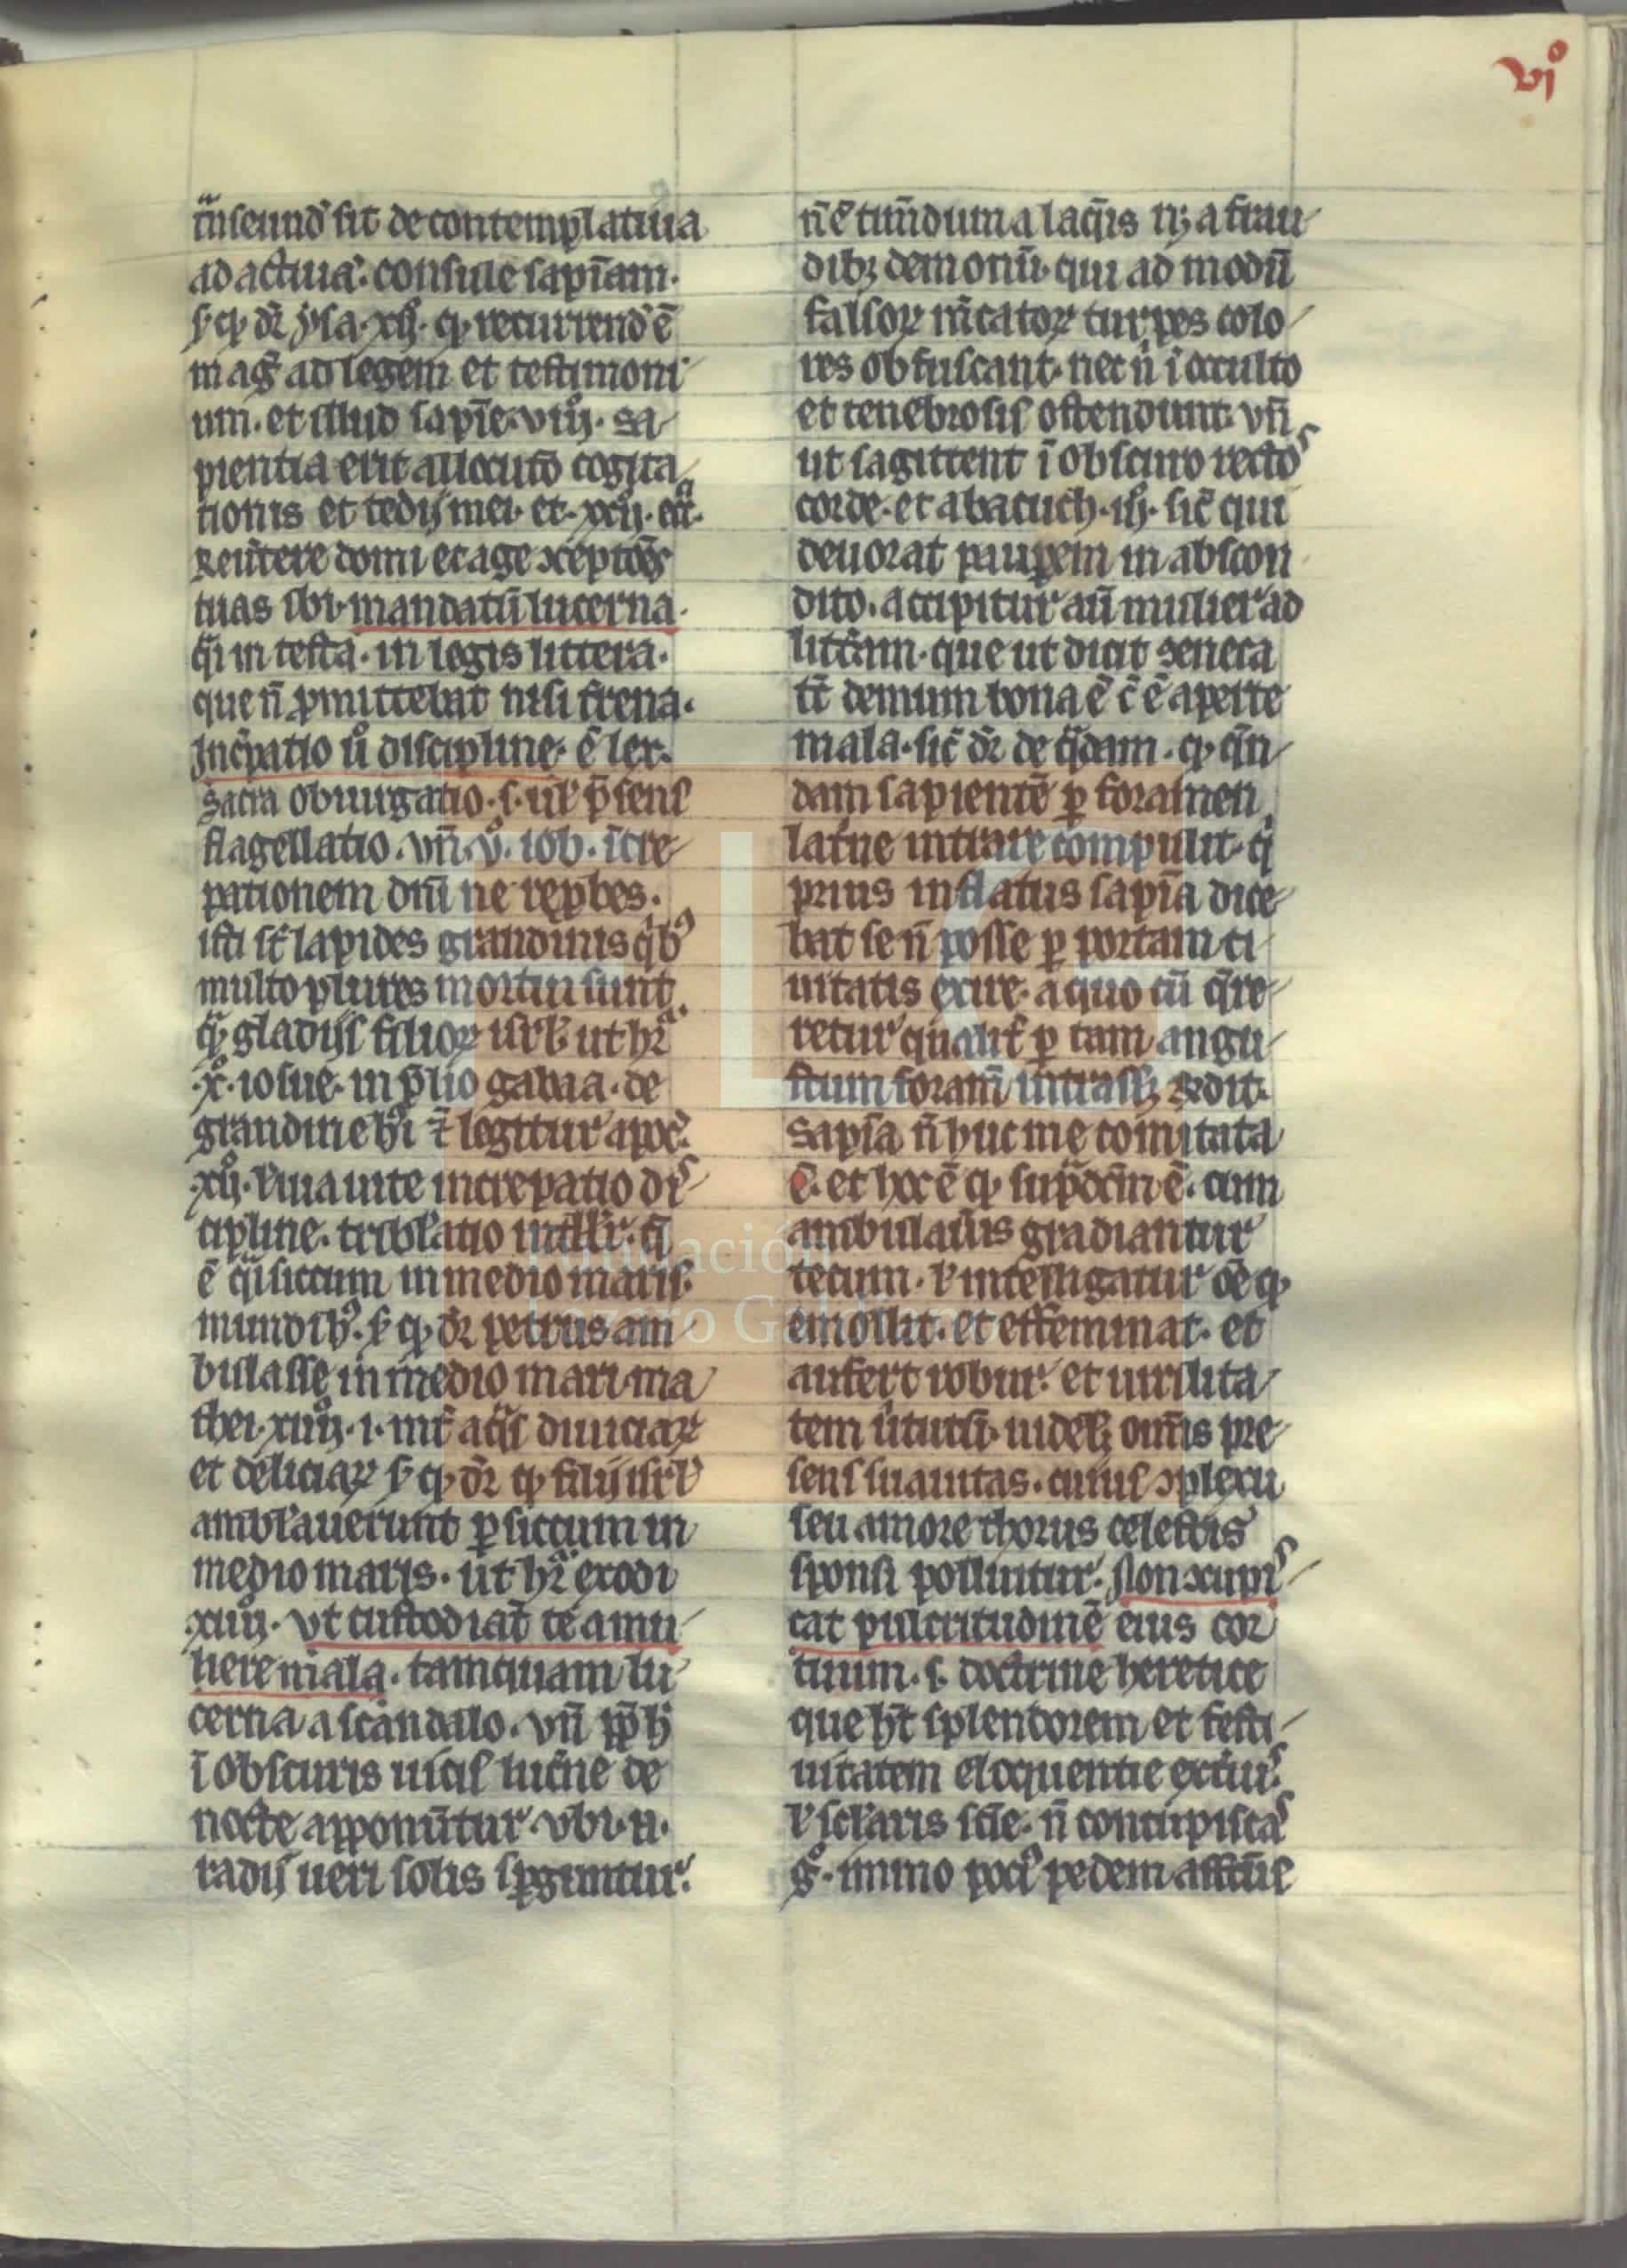 vıº
t̄nseund̕ sit de contemplatiua
ad actiuā· consule sapīam·
s̕ ꝙ dr̄ ysa·xiȷ· ꝙ recurrend̕ ē
mag̕ ad legem et testimoni
um· et illud sapīe·viiȷ· sa
pientia erit allocutō cogita
tionis et tedij mei· et·xxiȷ·
tuas ibi· mandatū lucerna·
q̄i in testa· in legis littera·
que n̄ ꝑmittebat nisi frena·
Inc̄patio ů discipline· ē lex·
sacra obiurgatio·s·
flagellatio· vn̄·v̊· iob· īcre
pationem dn̄i ne rep̄bes·
isti st̄ lapides grandinis q̇bꝰ
multo plures mortui sunt
q̄ gladijs filioꝝ isrl̕ ut hr̄
·x̊· iosue· in p̄lio gabaa· de
grandine legitur apoc̄·
increpatio di
cipline· tribl̕atio
ē q̄i siccum in medio maris
mundi hꝰ· s̕ ꝙ dr̄ petrus am
bulasse in medio mari· ma
thei·xiiiȷ·i· int̄ aq̄s diuiciaꝝ
et deliciaꝝ s̕ ꝙ dr̄ ꝙ filij isrl̕
ambl̕auerunt ꝑ siccum in
medio maris· ut hr̄ exodi
·xiiiȷ· vt custodiāt te a mu
liere mala· tamquam lu
cerna a scandalo· vn̄
ī obscuris uicis luc̄ne de
nocte apponūtur· vbi·n·
radij ueri solis sꝑguntur·
n̄ ē tim̄dum a laq̄is nȝ a frau
dibȝ demonū· qui ad modū
falsoꝝ m̄catoꝝ turpes colo
res obfuscant· nec n̄ ī occulto
et tenebrosis ostendunt· vn̄
ut sagittent ī obscuro recto
corde· et abacuch·iiȷ· sic̄ qui
deuorat pauꝑem in abscon
dito· accipitur aū mulier ad
litt̄am· que ut dicit seneca
tc̄ demum bona ē c̄ ē aperte
mala· sic̄ dr̄ de q̄dam· ꝙ q̄n
dam sapientē ꝑ foramen
lat̄ne intrare compulit· q̇
prius inflatus sapīa dice
bat se n̄ posse ꝑ portam ci
uitatis exire· a quo cū q̄re
retur qualit̄ ꝑ tam angu
stum foram̄ int̄assȝ rn̄dit·
sapīa n̄ huc me comitata
ē· et hoc ē ꝙ sup̄dc̄m ē· cum
ambulau̕is gradiantur
tecum· ł intelligatur oē ꝙ
emollit· et effeminat· et
aufert robur· et uirilita
tem ůtutū· uidelȝ om̄is pre
sens suauitas· cuius ꝯplexu
seu amore thorus celestis
sponsi polluitur· Non ꝯcupi
cat pulcritudinē eius cor
tuum· s· doctrine heretice
que hn̄t splendorem et festi
uitatem eloquentie
ł scl̕aris scīe· n̄ concupiscas
g̊· immo poci̕ pedem